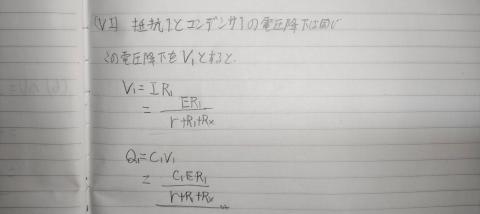 (VI) 抵抗1とコンデンサ1の電圧降下は同じ
この電圧降下をV₁とすると.
V₁ = IR₁
= ER₁ / r+R₁+Rx
Q₁ = C₁V₁
= C₁ER₁ / r+R₁+Rx